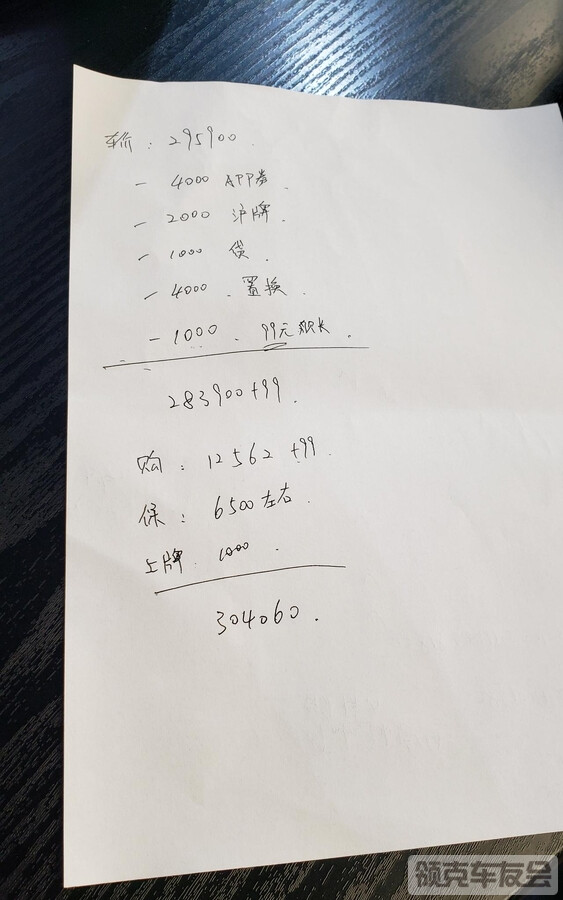 车价: 295900.
- 4000 APP券.
- 2000 沪牌.
- 1000 贷.
- 4000. 置换.
- 1000. 99元 舰长.
283900+99.
购: 12562 +99.
保: 6500左右.
上牌 1000.
304060.
领克车友会